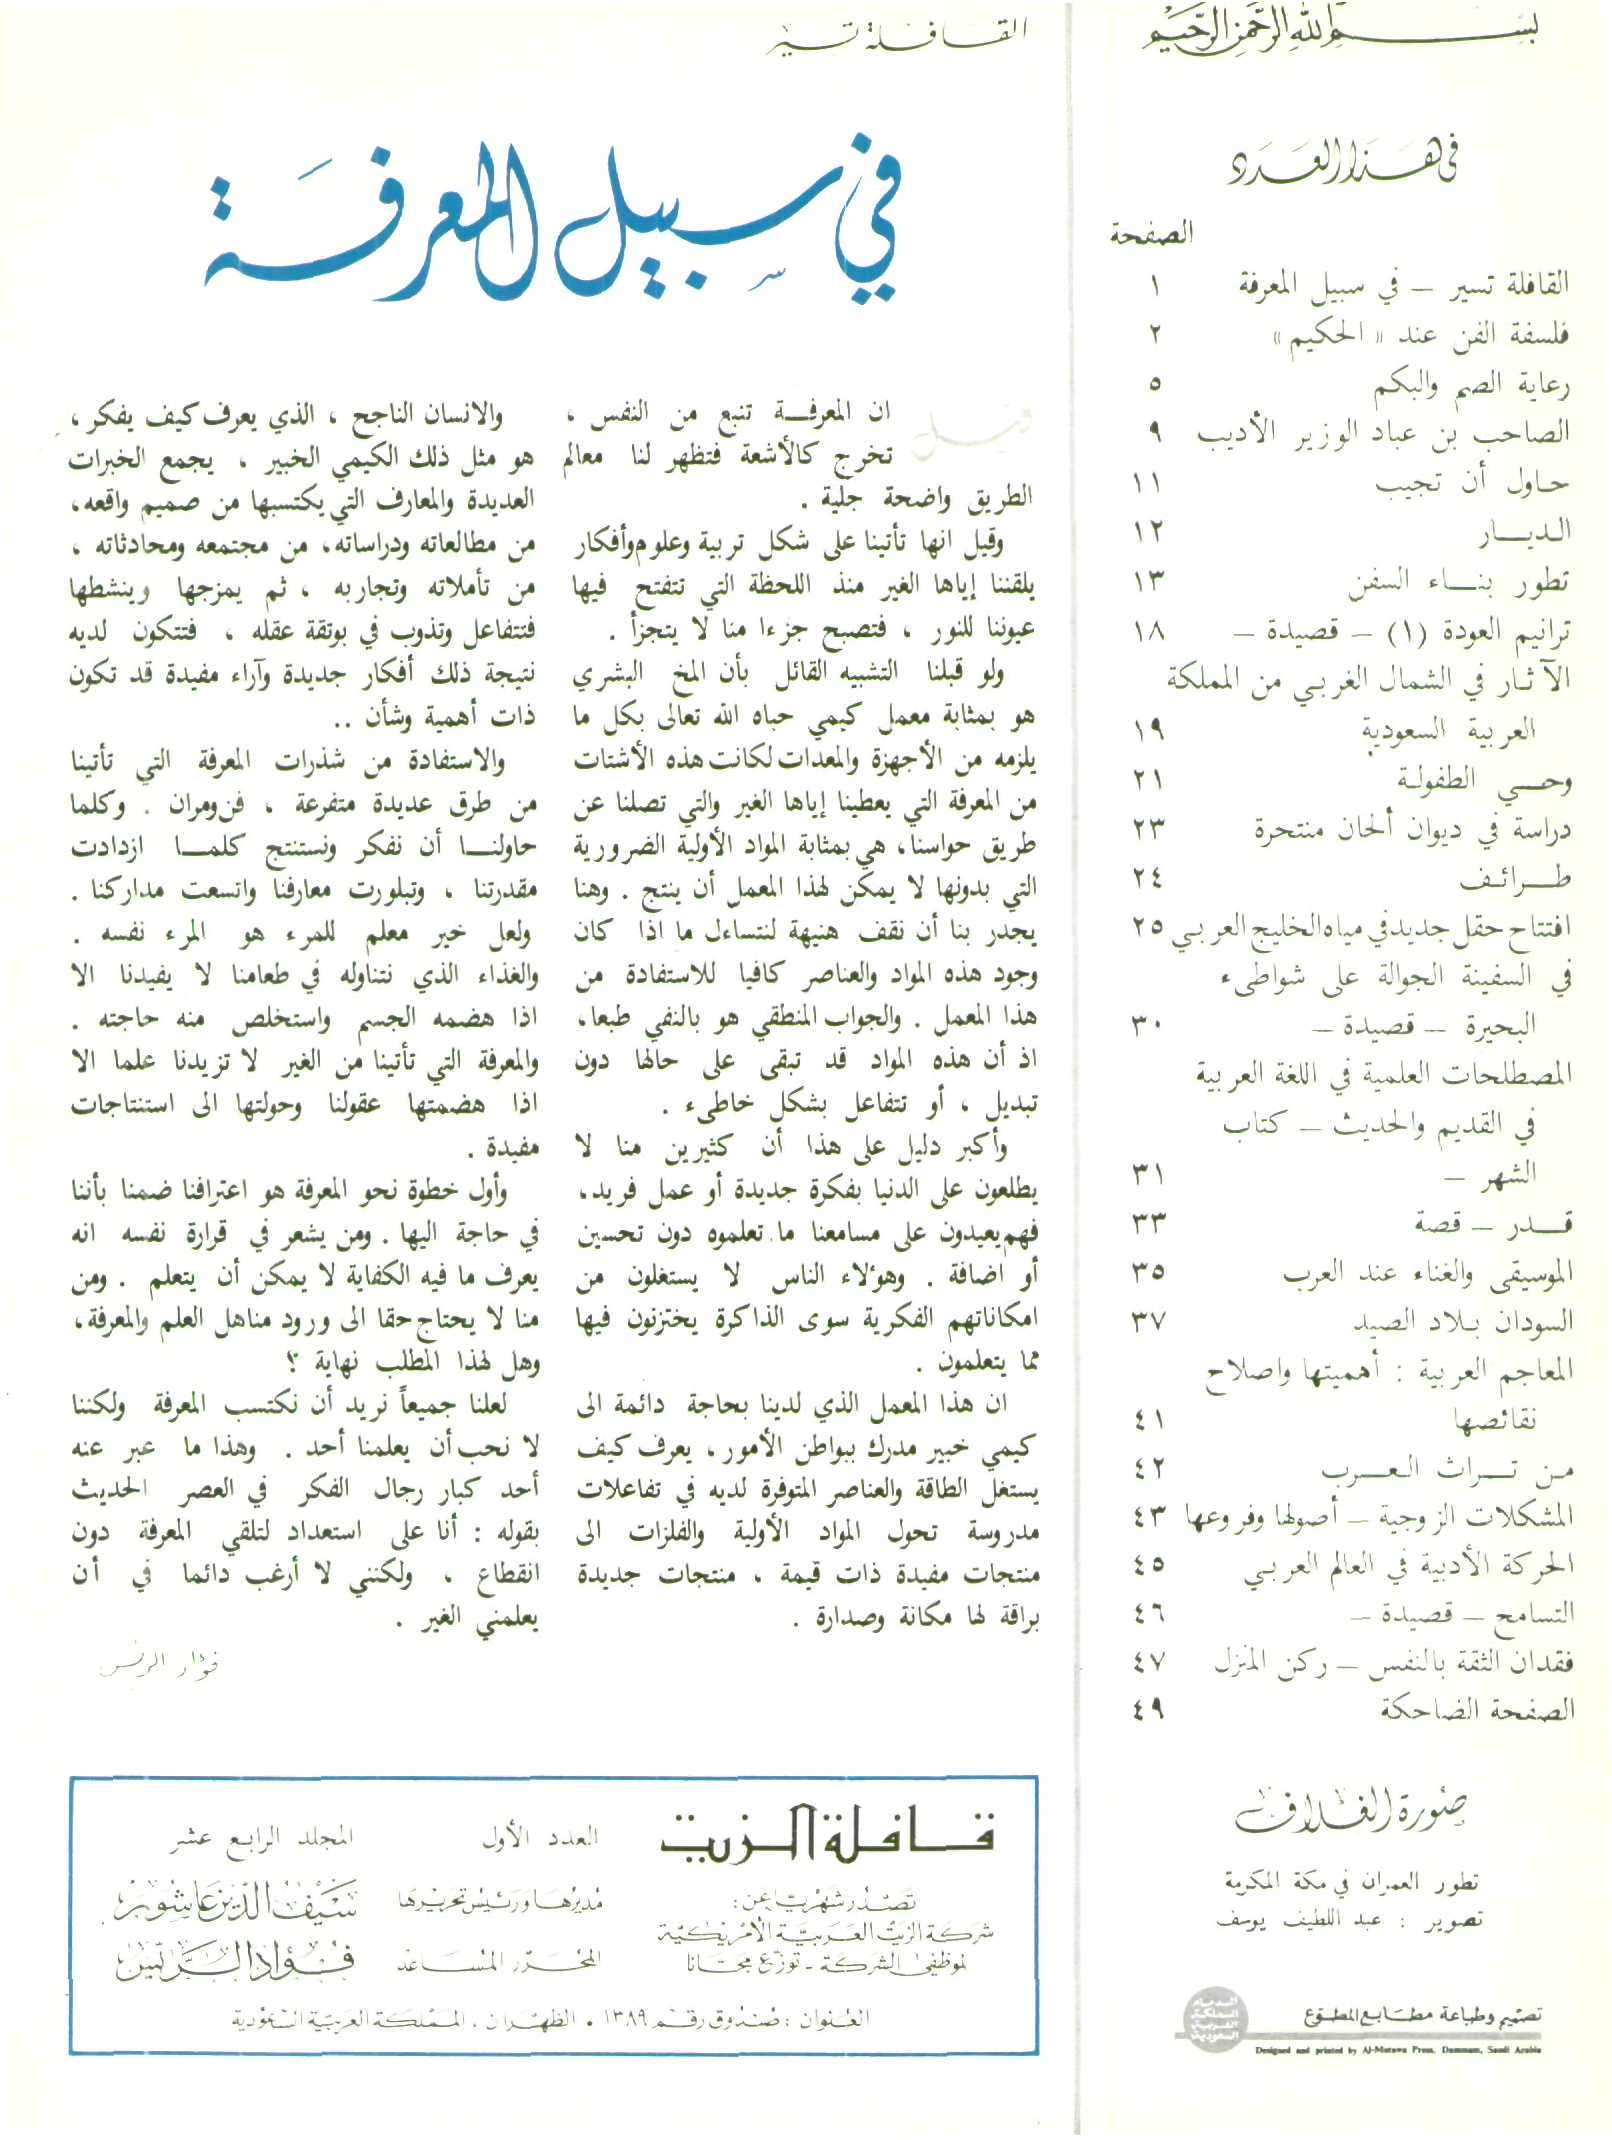 بسم الله الرحمن الرحيم
في هذا العدد
الصفحة
القافلة تسير – في سبيل المعرفة ١
فلسفة الفن عند « الحكيم » ٢
رعاية الصم والبكم ٥
الصاحب بن عباد الوزير الأديب ٩
حاول أن تجيب ١١
الديار ١٢
تطور بناء السفن ١٣
ترانيم العودة (١) – قصيدة – ١٨
الآثار في الشمال الغربي من المملكة
العربية السعودية ١٩
وحي الطفولة ٢١
دراسة في ديوان ألحان منتحرة ٢٣
طرائف ٢٤
افتتاح حقل جديد في مياه الخليج العربي ٢٥
في السفينة الجوالة على شواطىء
البحيرة – قصيدة – ٣٠
المصطلحات العلمية في اللغة العربية
في القديم والحديث – كتاب
الشهر – ٣١
قدر – قصة ٣٣
الموسيقى والغناء عند العرب ٣٥
السودان بلاد الصيد ٣٧
المعاجم العربية : أهميتها واصلاح
نقائصها ٤١
من تراث العرب ٤٢
المشكلات الزوجية – أصولها وفروعها ٤٣
الحركة الأدبية في العالم العربي ٤٥
التسامح – قصيدة – ٤٦
فقدان الثقة بالنفس – ركن المنزل ٤٧
الصفحة الضاحكة ٤٩
صورة الغلاف
تطور العمران في مكة المكرمة
تصوير : عبد اللطيف يوسف
الدمام
المملكة
العربية
السعودية
تصميم وطباعة مطابع المطوع
Designed and printed by Al-Mutawa Press, Dammam, Saudi Arabia
القافلة تسير
في سبيل المعرفة
قيل ان المعرفة تنبع من النفس ،
تخرج كالأشعة فتظهر لنا معالم
الطريق واضحة جلية .
وقيل انها تأتينا على شكل تربية وعلوم وأفكار
يلقننا إياها الغير منذ اللحظة التي تتفتح فيها
عيوننا للنور ، فتصبح جزءا منا لا يتجزأ .
ولو قبلنا التشبيه القائل بأن المخ البشري
هو بمثابة معمل كيمي حباه الله تعالى بكل ما
يلزمه من الأجهزة والمعدات لكانت هذه الأشتات
من المعرفة التي يعطينا إياها الغير والتي تصلنا عن
طريق حواسنا، هي بمثابة المواد الأولية الضرورية
التي بدونها لا يمكن لهذا المعمل أن ينتج . وهنا
يجدر بنا أن نقف هنيهة لنتساءل ما اذا كان
وجود هذه المواد والعناصر كافيا للاستفادة من
هذا المعمل . والجواب المنطقي هو بالنفي طبعا،
اذ أن هذه المواد قد تبقى على حالها دون
تبديل ، أو تتفاعل بشكل خاطىء .
وأكبر دليل على هذا أن كثيرين منا لا
يطلعون على الدنيا بفكرة جديدة أو عمل فريد،
فهم يعيدون على مسامعنا ما تعلموه دون تحسين
أو اضافة . وهؤلاء الناس لا يستغلون من
امكاناتهم الفكرية سوى الذاكرة يختزنون فيها
مما يتعلمون .
ان هذا المعمل الذي لدينا بحاجة دائمة الى
كيمي خبير مدرك ببواطن الأمور ، يعرف كيف
يستغل الطاقة والعناصر المتوفرة لديه في تفاعلات
مدروسة تحول المواد الأولية والفلزات الى
منتجات مفيدة ذات قيمة ، منتجات جديدة
براقة لها مكانة وصدارة .
والانسان الناجح ، الذي يعرف كيف يفكر ،
هو مثل ذلك الكيمي الخبير ، يجمع الخبرات
العديدة والمعارف التي يكتسبها من صميم واقعه،
من مطالعاته ودراساته، من مجتمعه ومحادثاته ،
من تأملاته وتجاربه ، ثم يمزجها وينشطها
فتتفاعل وتذوب في بوتقة عقله ، فتتكون لديه
نتيجة ذلك أفكار جديدة وآراء مفيدة قد تكون
ذات أهمية وشأن ..
والاستفادة من شذرات المعرفة التي تأتينا
من طرق عديدة متفرعة ، فن ومران . وكلما
حاولنا أن نفكر ونستنتج كلما ازدادت
مقدرتنا ، وتبلورت معارفنا واتسعت مداركنا .
ولعل خير معلم للمرء هو المرء نفسه .
والغذاء الذي نتناوله في طعامنا لا يفيدنا الا
اذا هضمه الجسم واستخلص منه حاجته .
والمعرفة التي تأتينا من الغير لا تزيدنا علما الا
اذا هضمتها عقولنا وحولتها الى استنتاجات
مفيدة .
وأول خطوة نحو المعرفة هو اعترافنا ضمنا بأننا
في حاجة اليها . ومن يشعر في قرارة نفسه انه
يعرف ما فيه الكفاية لا يمكن أن يتعلم . ومن
منا لا يحتاج حقا الى ورود مناهل العلم والمعرفة،
وهل لهذا المطلب نهاية ؟
لعلنا جميعاً نريد أن نكتسب المعرفة ولكننا
لا نحب أن يعلمنا أحد . وهذا ما عبر عنه
أحد كبار رجال الفكر في العصر الحديث
بقوله : أنا على استعداد لتلقي المعرفة دون
انقطاع ، ولكنني لا أرغب دائما في أن
يعلمني الغير .
فؤاد الريس
قافلة الزيت
العدد الأول
المجلد الرابع عشر
تصدر شهريا عن:
شركة الزيت العربية الأمريكية
لموظفي الشركة - توزع مجانا
مديرها ورئيس تحريرها سيف الدين عاشور
المحرر المساعد فؤاد الريس
العنوان : صندوق رقم ١٣٨٩ . الظهران ، المملكة العربية السعودية